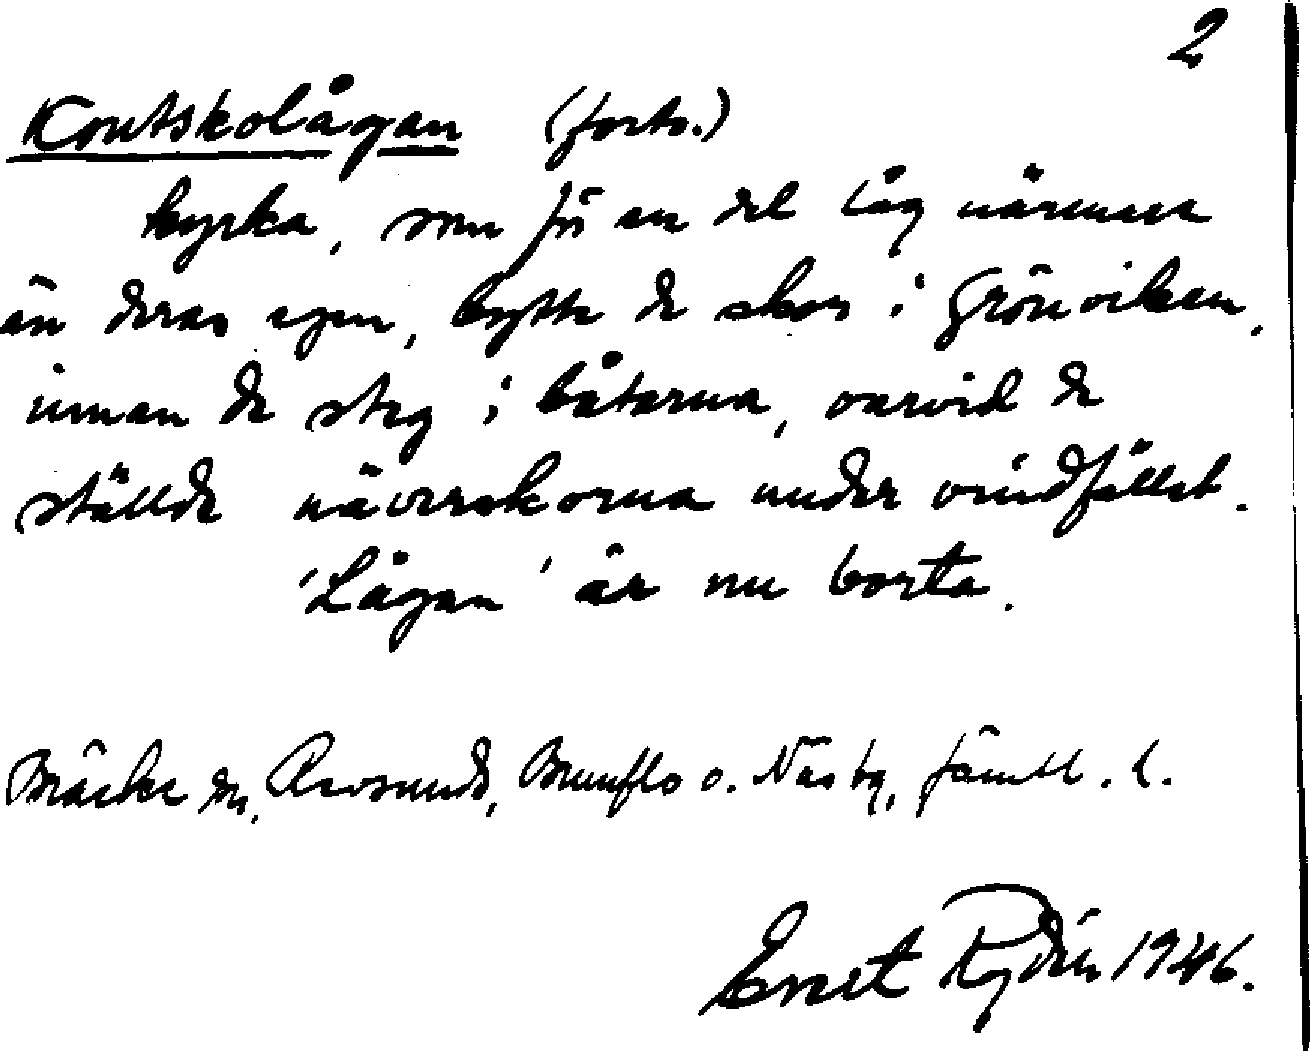 2
Kontskolågan (forts.)
kyrka, som för en del låg närmare
än deras egen, bytte de skor i Grönviken,
innan de steg i båtarna, varvid de
ställde näverskorna under vindfället.
'Lågan' är nu borta.
Bräcke sn, Revsunds, Brunflo o. Näs tg, Jämtl. l.
Ernst Rydén 1946.